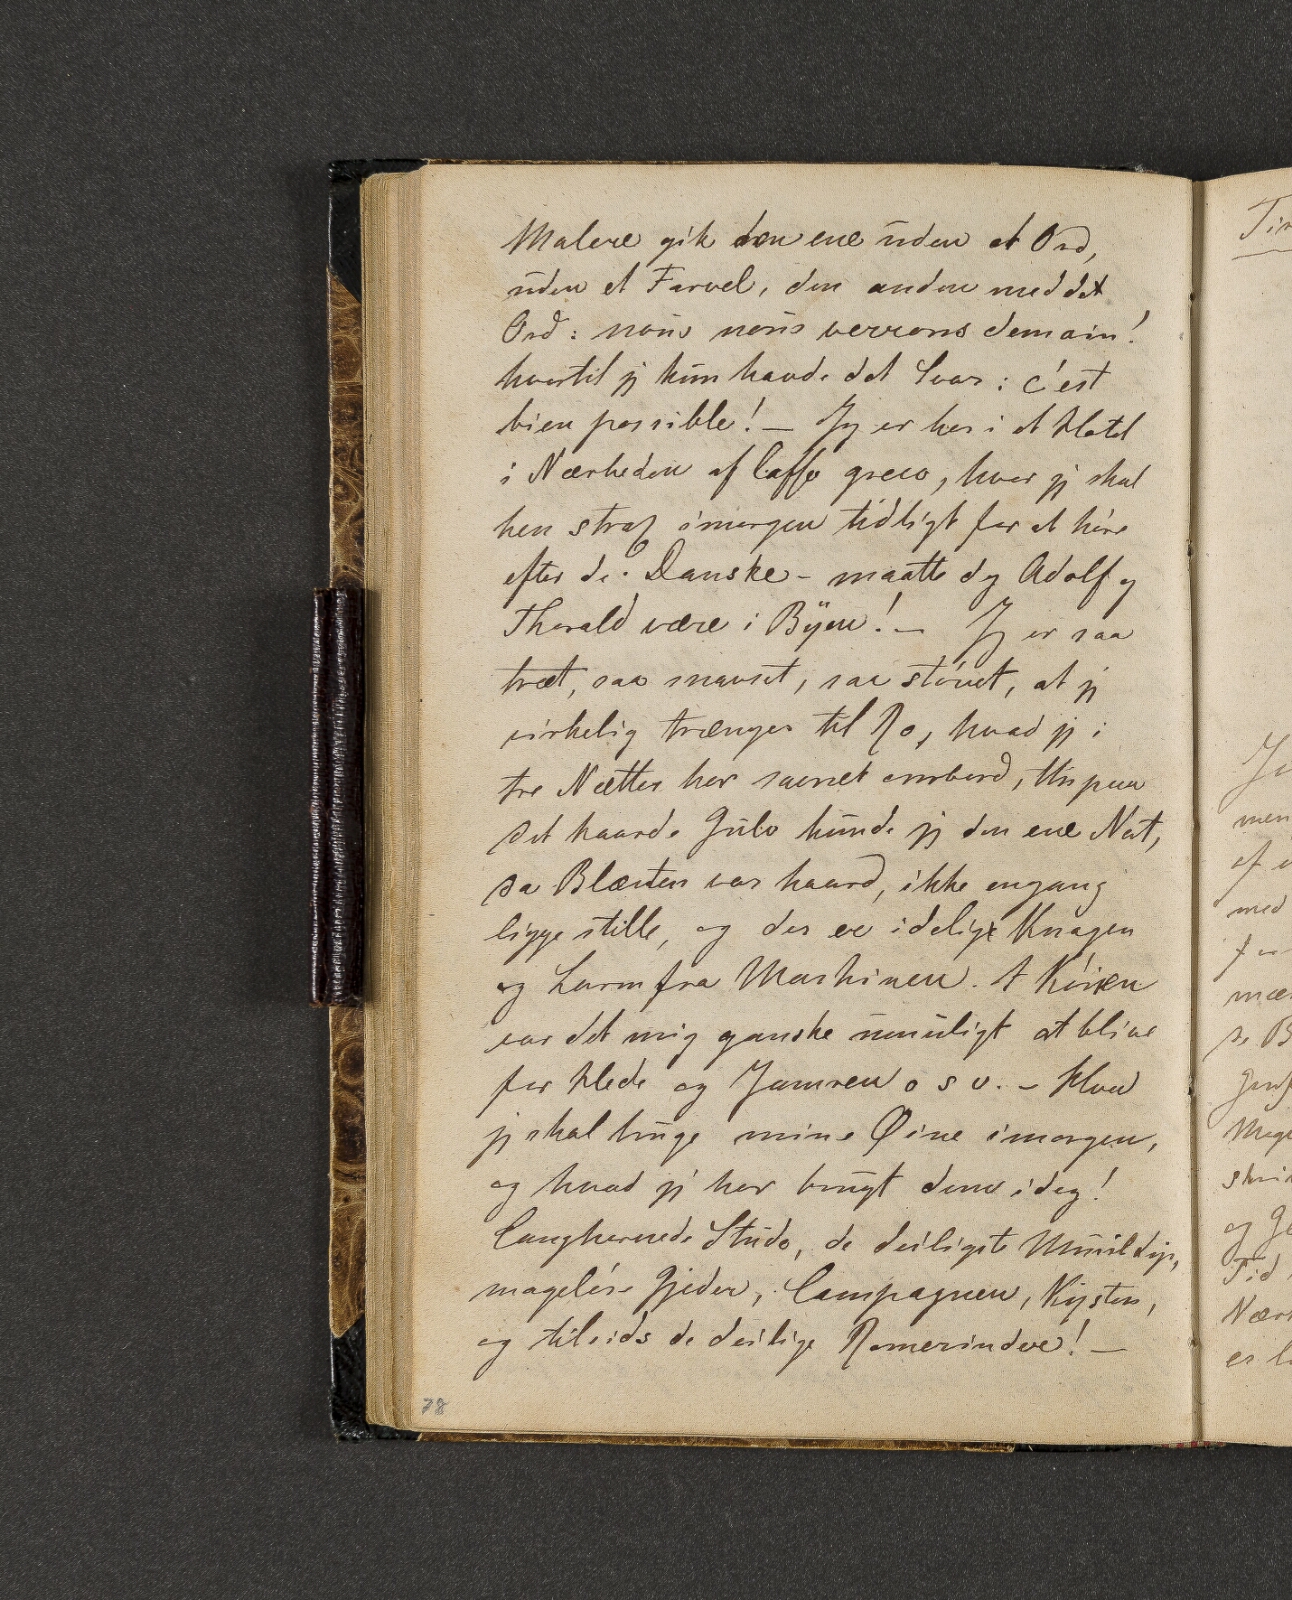 Malere gik den ene uden et Ord,
uden et Farvel, den anden med det
Ord: nous nous verrons demain!
hvortil jg kun havde det Svar: c'est
bien possible! — Jg er her i et Hotel
i Nærheden af Caffe greco, hvor jg skal
hen strax imorgen tidligt for at høre
efter de Danske - maatte dog Adolf og
Thorald være i Byen! — Jg er saa
træt, saa snavset, saa støvet, at jg
virkelig trænger til Ro, hvad jg i
tre Nætter har savnet ombord, thi paa
det haarde Gulv kunde jg den ene Nat,
da Blæsten var haard, ikke engang
ligge stille, og der er idelig Knagen
og Larm fra Maskinen. I Køien
var det mig ganske umuligt at blive
for Hede og Jamren o s v. - Hvad
jg skal bruge mine Øine imorgen,
og hvad jg har brugt dem idag!
Langhornede Stude, de deiligste Muuldyr,
mageløse Gjeder, Campagnen, Kysten,
og tilsids de deilige Romerinder! —
78
Tir
men
af
med
for
mær
de B
Mege
skri
og Ge
Tid
Nær
er